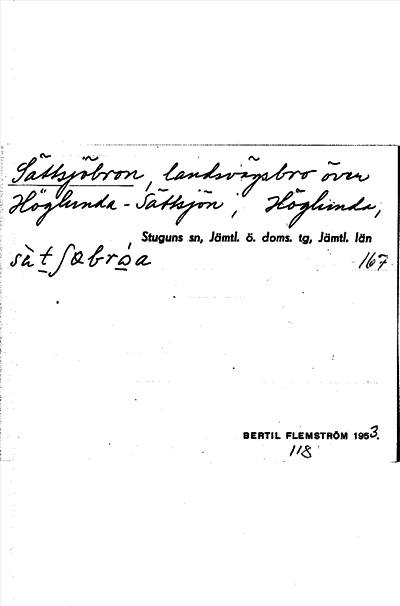 Sättsjöbron, landsvägsbro över
Höglunda-Sättsjön, Höglunda,
Stuguns sn, Jämtl. ö. doms. tg, Jämtl. län
sàt ʃœbróa 167
BERTIL FLEMSTRÖM 1953.
118